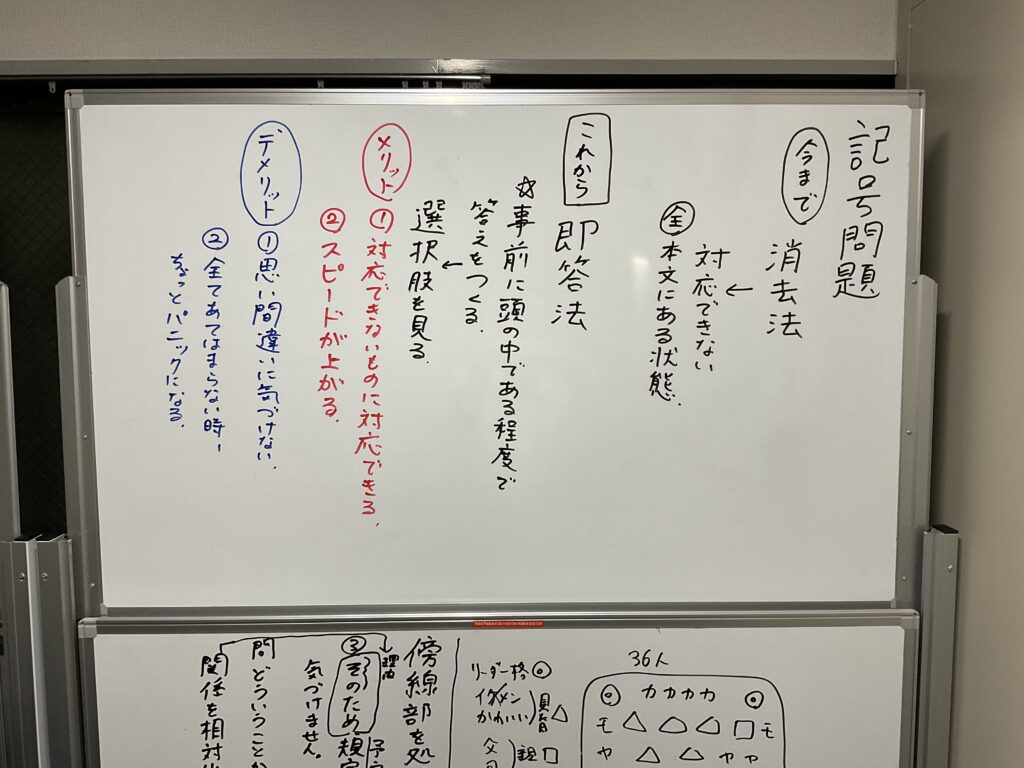 記号問題
今まで
消去法
←
対応できない
全 本文にある状態.
これから
即答法
☆事前に頭の中である程度で
答えをつくる.
←
選択肢を見る.
メリット
①対応できないものに対応できる.
②スピードが上がる.
デメリット
①思い間違いに気づけない.
②全てあてはまらない時ー
ちょっとパニックになる.
Note:Please slide from the middle position
36人
リーダー格◎
イケメン
かわいい
△
父
□
◎ カカカカ ◎
モ △ △ △ □ モ
ヤ △ △ ヤヤ
傍線部を処
理由
③
そのため
気づけません。
問 どういうことか
関係を相対